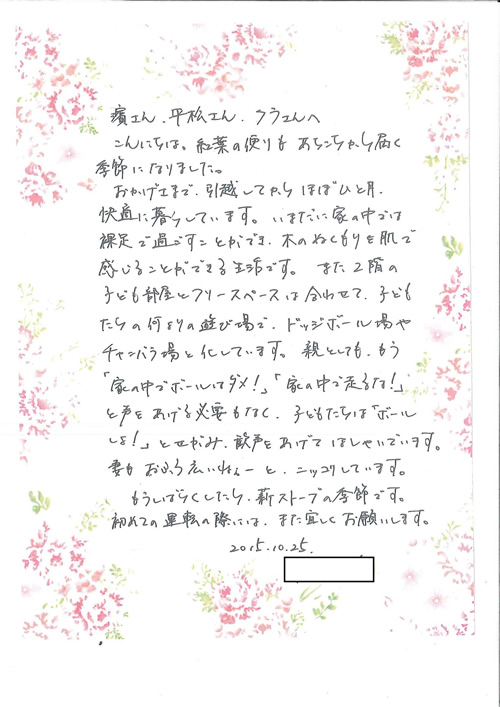 濱さん、平松さん、クラさんへ
こんにちは。紅葉の便りもあちこちから届く
季節になりました。
おかげさまで、引越してからほぼひと月、
快適に暮らしています。いまだに家の中では
裸足で過ごすことができ、木のぬくもりを肌で
感じることができる生活です。また2階の
子ども部屋とフリースペースは合わせて、子ども
たちの何よりの遊び場で、ドッジボール場や
チャンバラ場と化しています。親としても、もう
「家の中でボールはダメ!」「家の中で走るな!」
と声をあげる必要もなく、子どもたちは「ボール
しよ!」とせがみ、歓声をあげてはしゃいでいます。
妻もおふろ広いねぇーと、ニッコリしています。
もうしばらくしたら、薪ストーブの季節です。
初めての運転の際には、また宜しくお願いします。
2015.10.25.